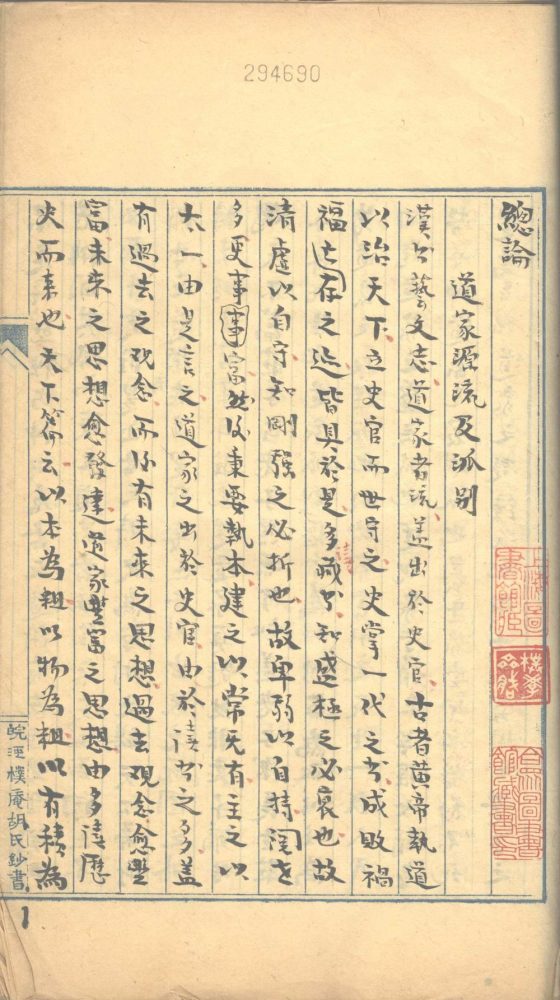 294690
總論
道家源流及派別
漢书藝文志道家者流盖出於史官古者黄帝執道
以治天下立史官而世守之史掌一代之书成敗禍
福亡存之迹皆具於是多讀藏书知盛極之必衰也故
清虚以自守知剛强之必折也故卑弱以自持閱世
多更事事富然後秉要執本建之以常无有主之以
太一由是言之道家之出於史官由於读书之多盖
有過去之观念而後有未來之思想過去观念愈豐
富未來之思想愈發達道家豐富之思想由多读歷
史而来也天下篇云以本為粗以物為粗以有積為
皖涇樸庵胡氏鈔書
1
上海圖書館
樸學齋
合眾圖書館藏書印